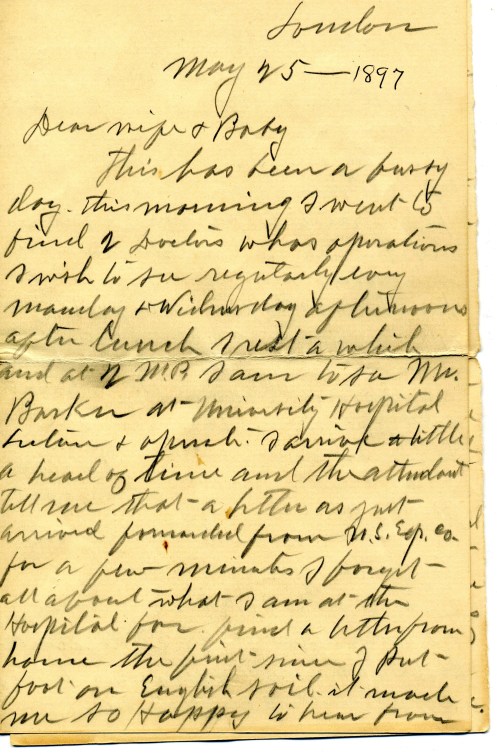 London
May 25 — 1897
Dear wife & Baby
This has been a busy
day. this morning I went to
find 2 Doctors whos operations
I wish to see regularly evry
monday & Wednesday afternoons
after lunch I rest a while
and at 2 P.M. I am to see Mr.
Barker at University Hospital
lecture & operate. I arrive a little
a head of time and the attendant
tell me that a letter as just
arrived forwarded from U.S. Exp. co.
for a few minutes I forget
all about what I am at the
Hospital for. find a letter from
home the first since I Put
foot on English soil. it made
me so Happy to hear from